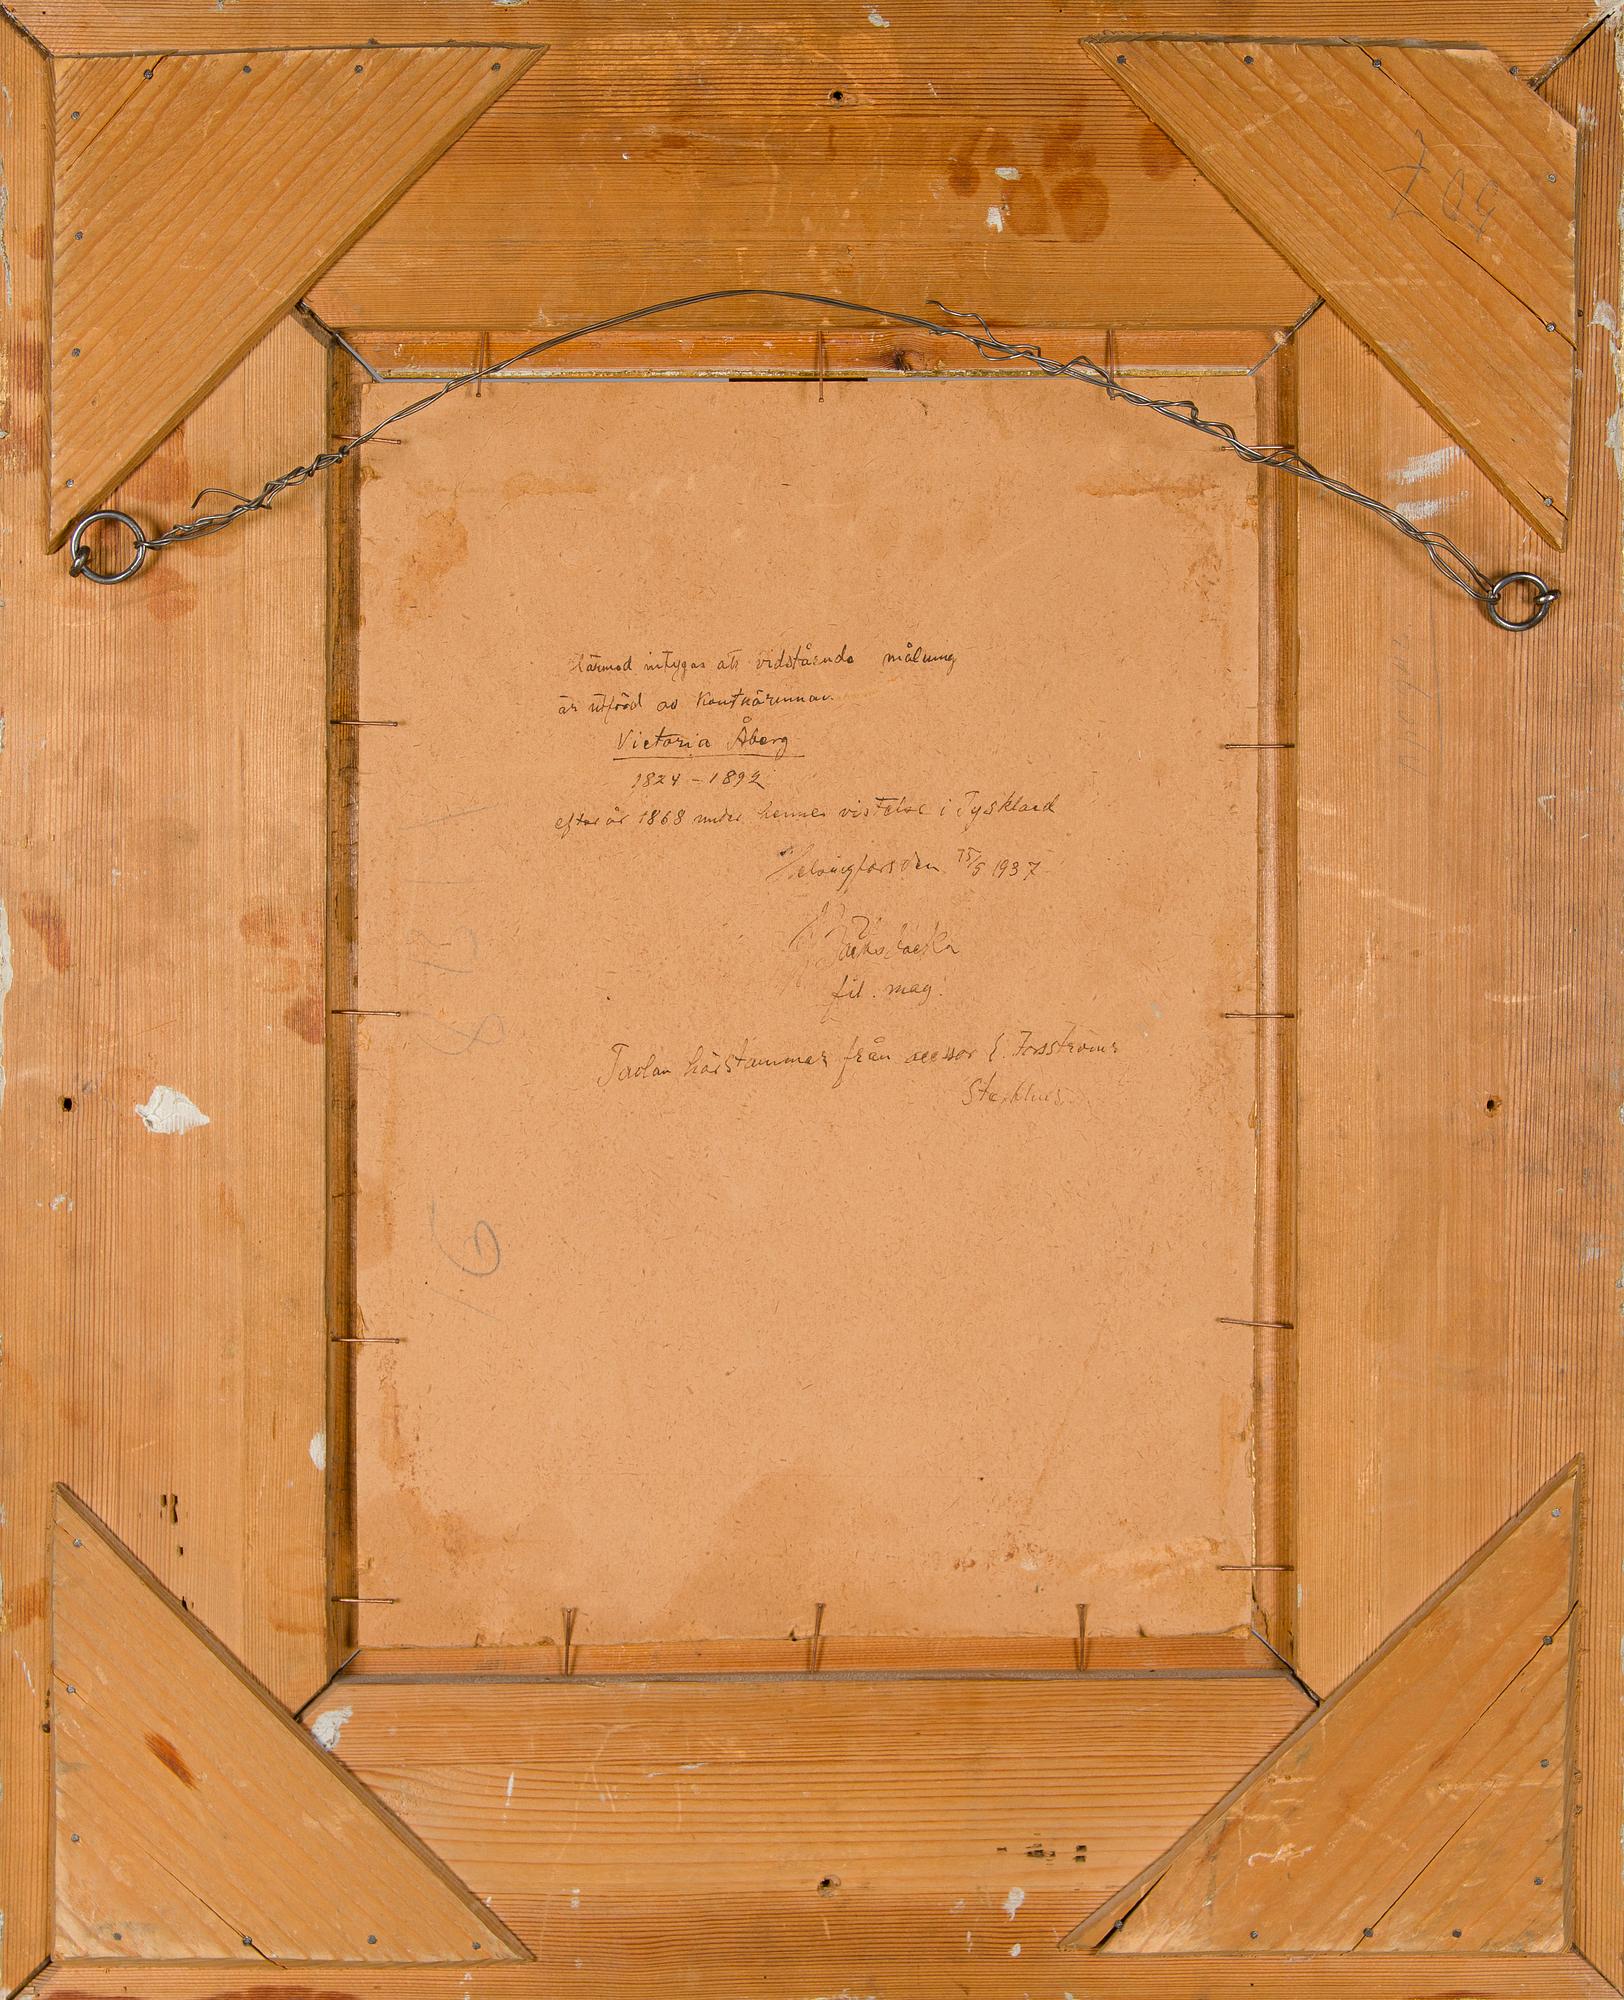 Härmed intygas att vidstående målning
är utförd av Konstnärinnan
Victoria Åberg
1824 - 1892
efter år 1868 under hennes vistelse i Tyskland
Helsingfors den 15/5 1937
fil. mag.
Tavlan härstammar från assessor E. Forsströms
507